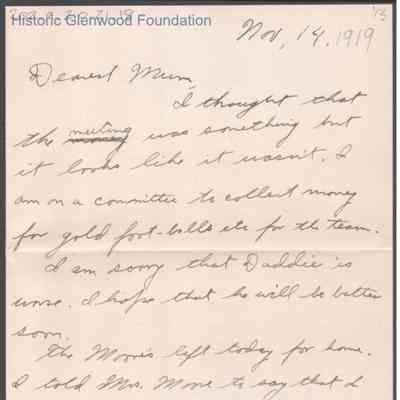 Historic Glenwood Foundation
'13
Nov, 14. 1919
Dearest Mum,
I thought that
the meeting was something but
it looks like it wasn't. I
am on a committee to collect money
for gold foot-balls etc for the team.
I am sorry that Daddie is
worse. I hope that he will be better
soon.
The Moore's left today for home.
I told Mrs. Moore to say that I